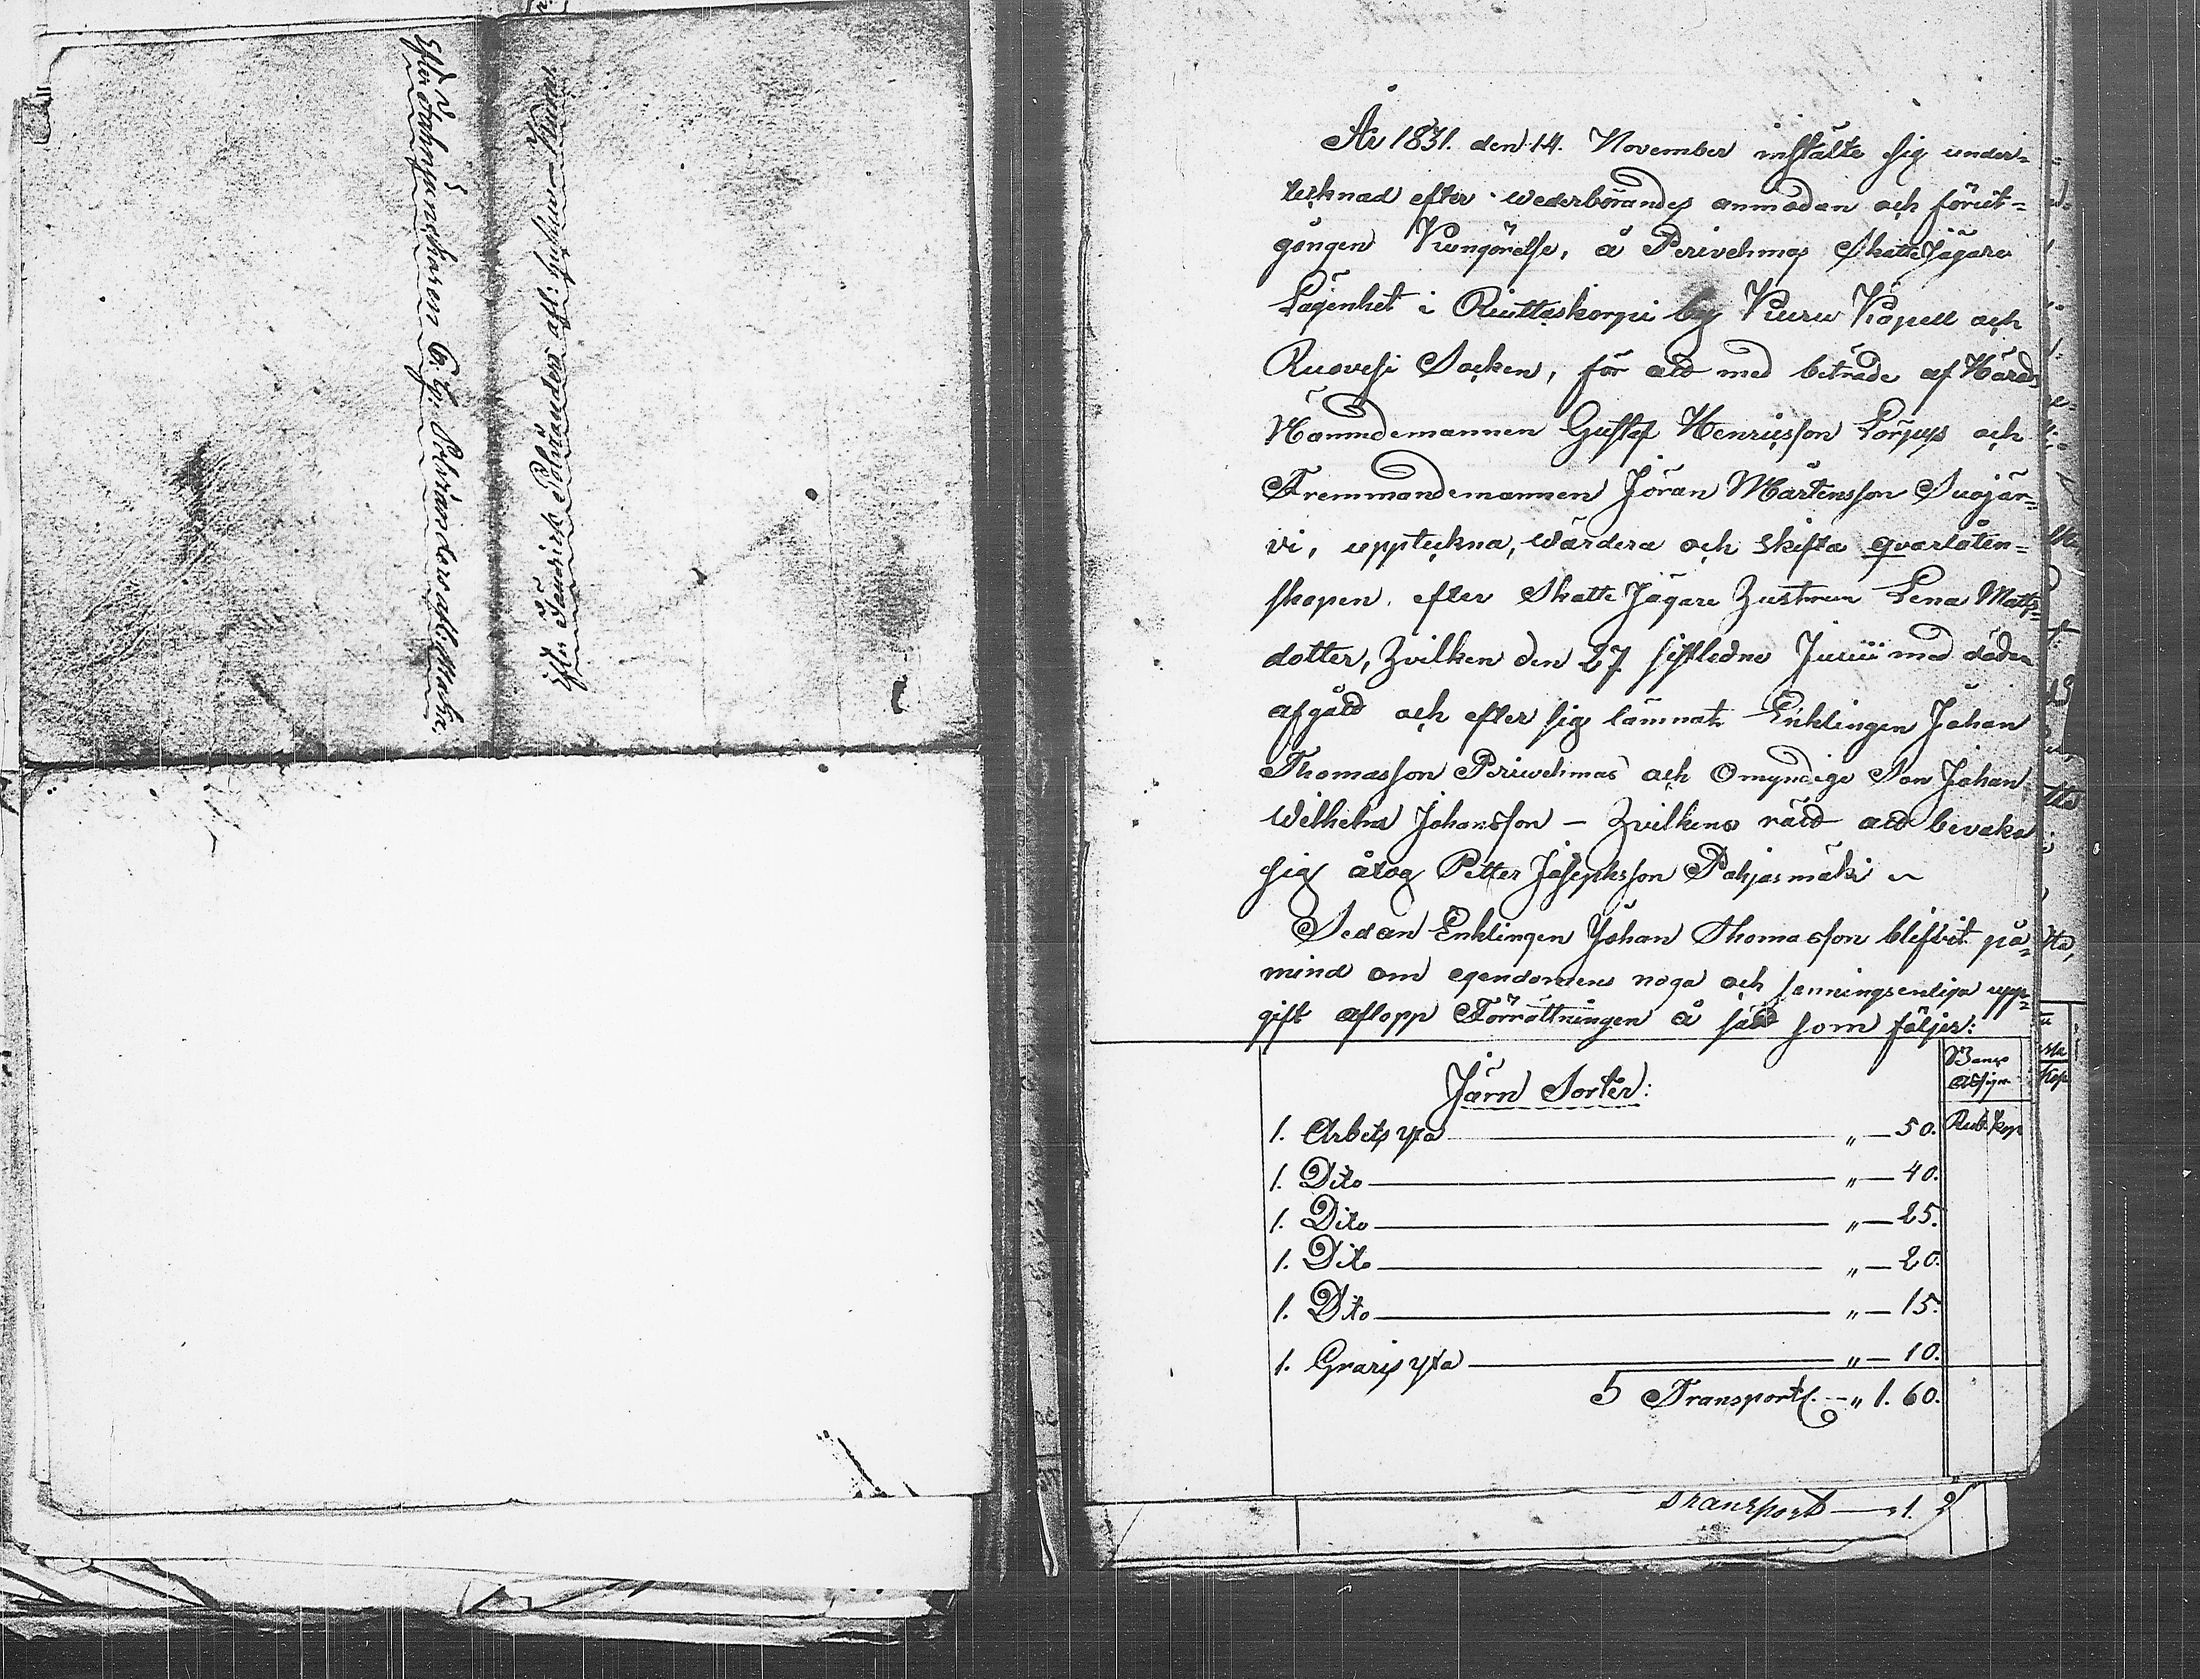 År 1831. den 14. November instälte sig under=
teknad efter wederbörandes anmodan och förut=
gången Kungörelse, å Perivehmas SkatteJägare
Lägenhet i Ruuttaskorpi by Kuru Kapell och
Ruovesi Socken, för att med beträde af Härads
Nämndemannen Gustaf Henricsson Lörpys och
Fremmandemannen Jöran Mårtensson Suojär=
vi, uppteckna, wärdera och skifta qvarlåten=
skapen efter Skatte Jägare Hustrun Lena Matts=
dotter, Hvilken den 27 sistledne Junii med döden
afgått och efter sig lämnat Enklingen Johan
Thomasson Perivehmas och Omyndige Son Johan
Wilhelm Johansson — Hvilkens rätt att bevaka
sig åtog Petter Josephsson Pohjasmäki
Sedan Enklingen Johan Thomasson blifvit på=
mind om egendomens noga och sanningsenliga upp=
gift aflopp Förrättningen å sätt som följer:
Banco Assign.
Järn Sorter:
Rub. kop
1. Arbets yxa — „ — 50.
1. Dito — „ — 40.
1. Dito — „ — 25.
1. Dito — „ — 20.
1. Dito — „ — 15.
1. yxa — „ — 10.
5 Transport — „ 1. 60.
Transport — 1.